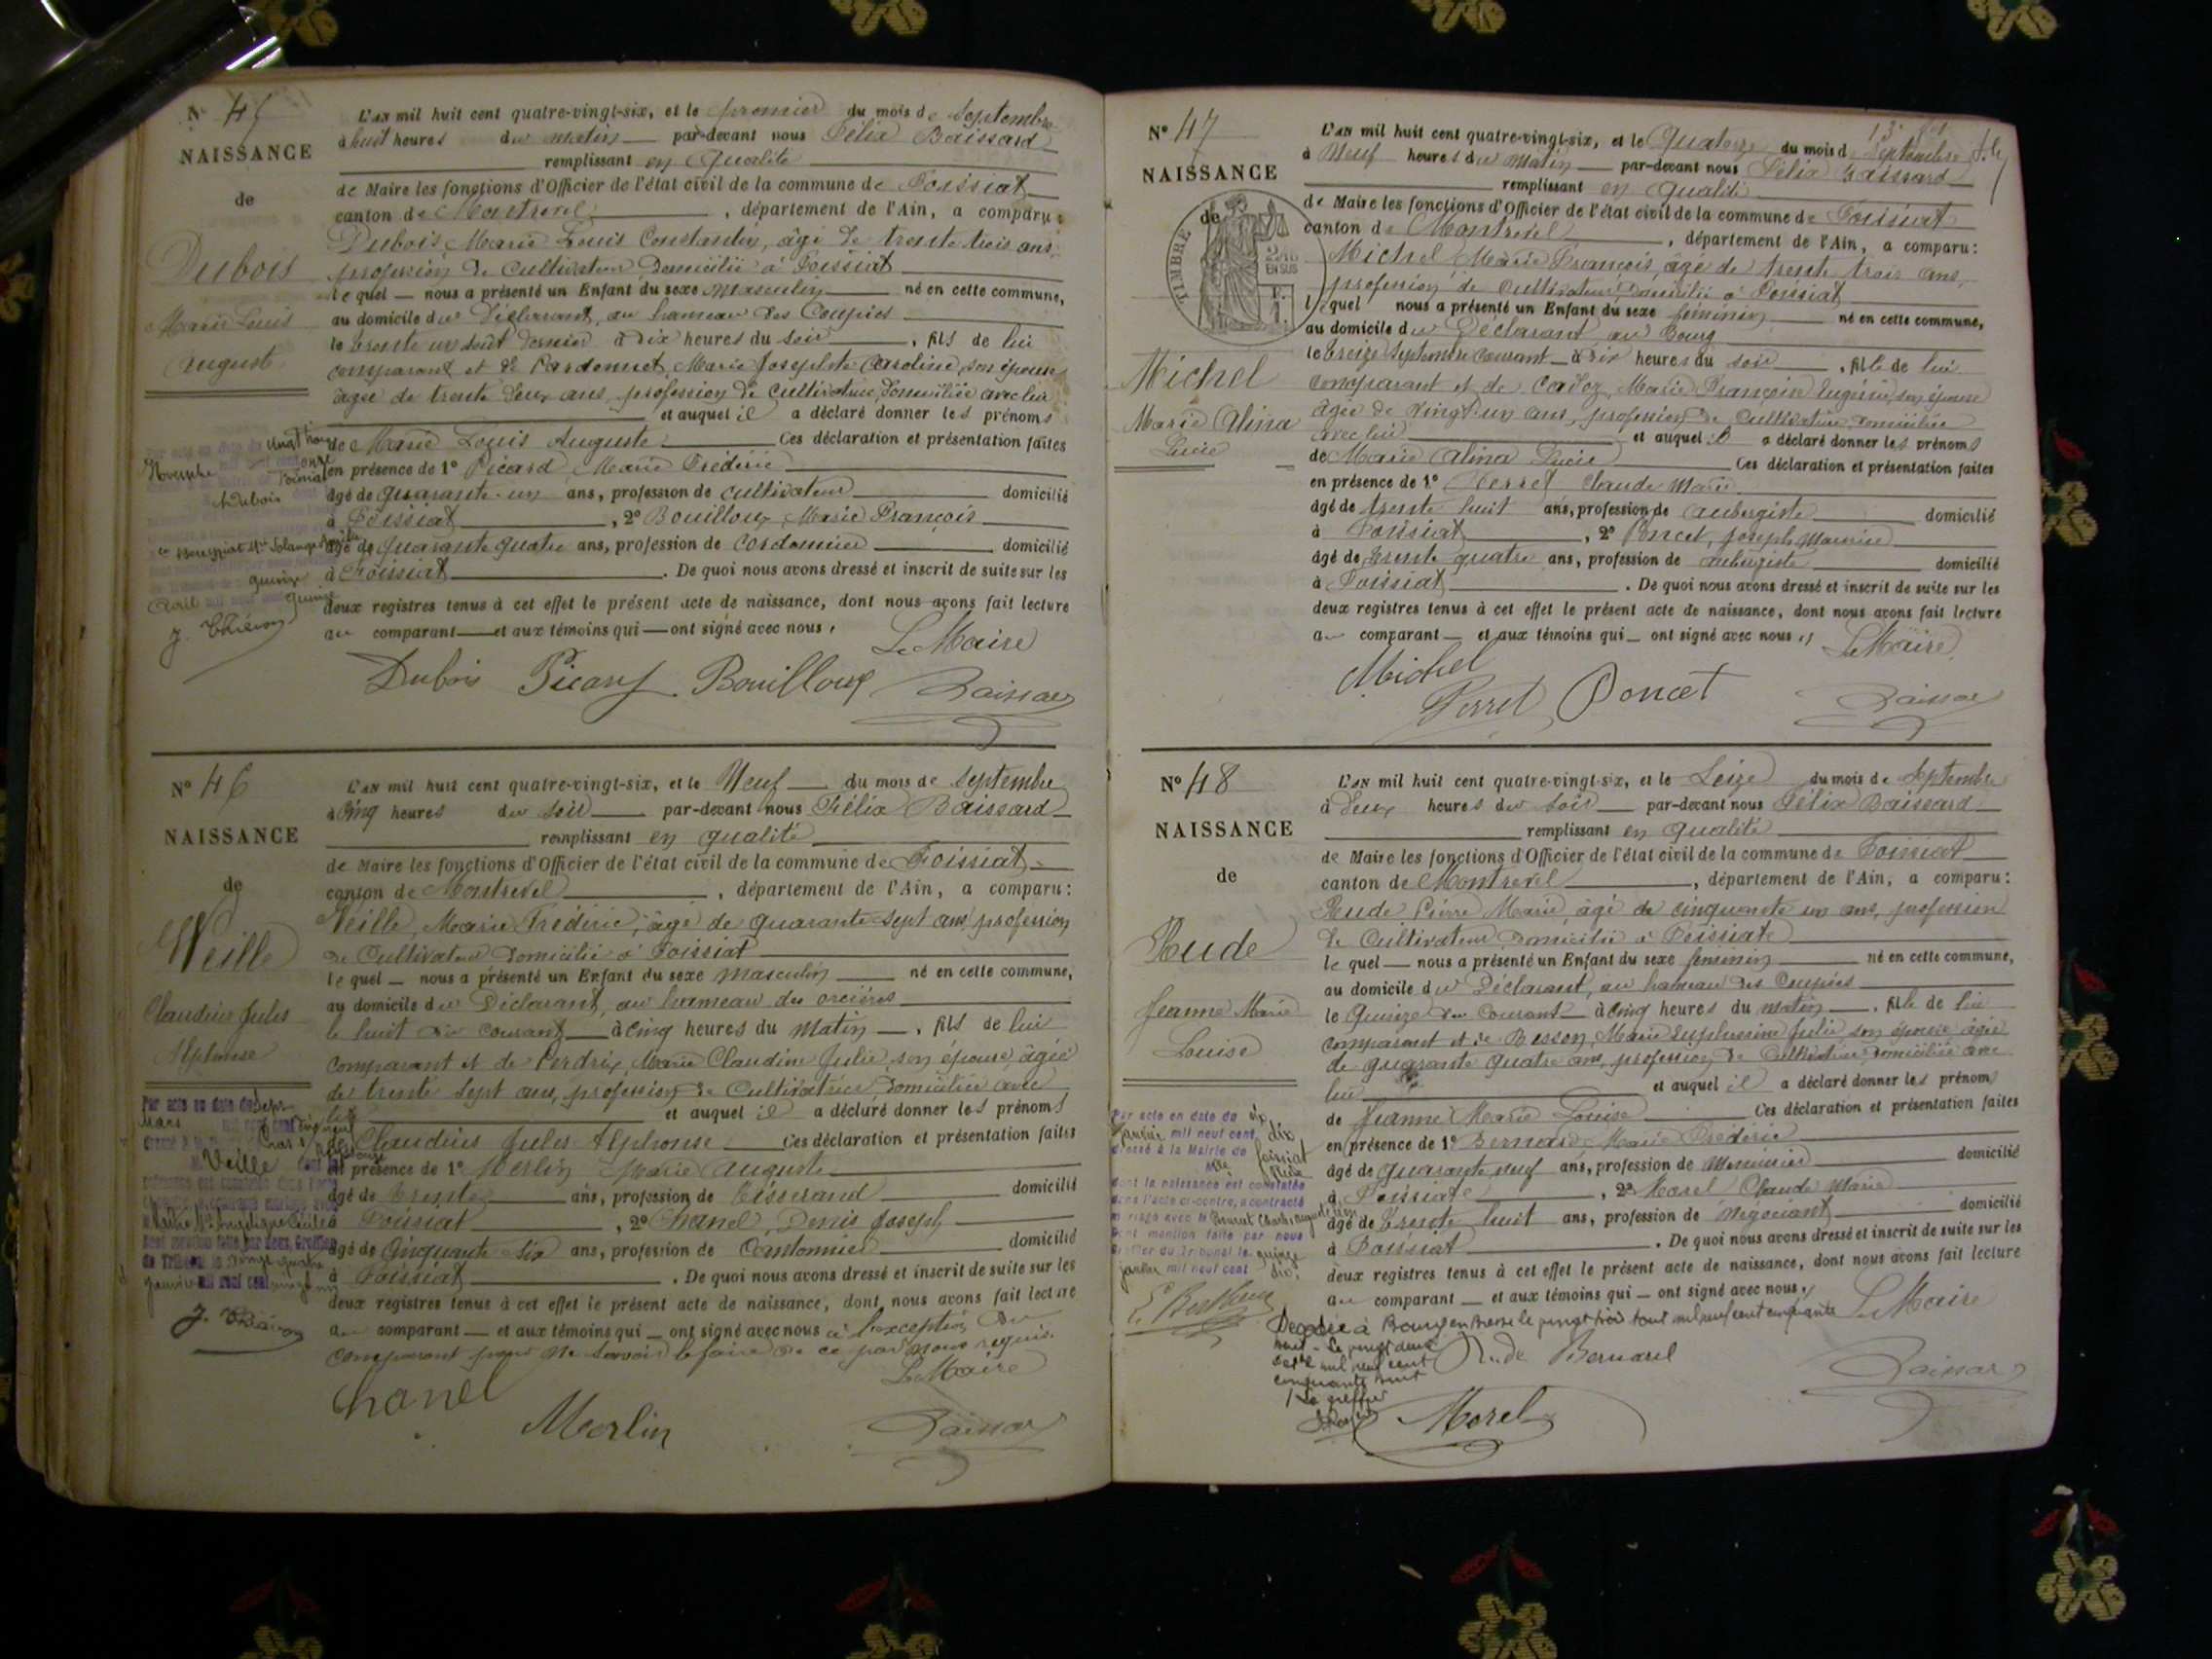 N° 45
NAISSANCE
de
Dubois
Marie Louis
Auguste
L'an mil huit cent quatre-vingt-six, et le premier du mois de Septembre
à huit heures du matin par-devant nous Félix Baissard
remplissant en qualité
de Maire les fonctions d'Officier de l'état civil de la commune de Foissiat
canton de Montrevel, département de l'Ain, a comparu:
Dubois Marie Louis Constantin, âgé de trente trois ans,
profession de Cultivateur Domicilié à Foissiat
lequel nous a présenté un Enfant du sexe masculin né en cette commune,
au domicile du Déclarant, au hameau des Coupies
le trente un août dernier à dix heures du soir, fils de lui
comparant et de Pardonnet, Marie Josephte Caroline, son épouse
âgée de trente deux ans, profession de Cultivatrice, domiciliée avec lui
et auquel il a déclaré donner les prénoms
de Marie Louis Auguste Ces déclaration et présentation faites
en présence de 1° Picard, Marie Frédéric
âgé de quarante-un ans, profession de cultivateur domicilié
à Foissiat, 2° Bouilloux, Marie François
âgé de quarante quatre ans, profession de cordonnier domicilié
à Foissiat. De quoi nous avons dressé et inscrit de suite sur les
deux registres tenus à cet effet le présent acte de naissance, dont nous avons fait lecture
au comparant et aux témoins qui ont signé avec nous.
Le Maire
Dubois Picard Bouilloux Baissard
vingt trois
Novembre onze
Foissiat
Dubois
quinze
Avril quinze
N° 46
NAISSANCE
de
Veille
Claudius Jules
Alphonse
L'an mil huit cent quatre-vingt-six, et le Neuf du mois de Septembre
à cinq heures du soir par-devant nous Félix Baissard
remplissant en qualité
de Maire les fonctions d'Officier de l'état civil de la commune de Foissiat
canton de Montrevel, département de l'Ain, a comparu:
Veille, Marie Frédéric, âgé de quarante-sept ans, profession
de Cultivateur Domicilié à Foissiat
lequel nous a présenté un Enfant du sexe masculin né en cette commune,
au domicile du Déclarant, au hameau des orcières
le huit du courant à cinq heures du Matin, fils de lui
comparant et de Perdrix, Marie Claudine Julie, son épouse, âgée
de trente sept ans, profession de Cultivatrice, Domiciliée avec
lui et auquel il a déclaré donner les prénoms
de Claudius Jules Alphonse Ces déclaration et présentation faites
en présence de 1° Merlin Marie Auguste
âgé de trente ans, profession de Tisserand domicilié
à Foissiat, 2° Chanel, Denis Joseph
âgé de Cinquante six ans, profession de Cantonnier domicilié
à Foissiat. De quoi nous avons dressé et inscrit de suite sur les
deux registres tenus à cet effet le présent acte de naissance, dont nous avons fait lecture
au comparant et aux témoins qui ont signé avec nous à l'exception du
comparant pour ne savoir le faire de ce par nous requis.
Le Maire
Chanel Merlin Baissard
Par acte en date du sept
Mars
Veille
N° 47
NAISSANCE
de
TIMBRE
2/10
EN SUS
Michel
Marie Alina
Lucie
L'an mil huit cent quatre-vingt-six, et le Quatorze du mois de Septembre
à Neuf heures du matin par-devant nous Félix Baissard
remplissant en qualité
de Maire les fonctions d'Officier de l'état civil de la commune de Foissiat
canton de Montrevel, département de l'Ain, a comparu:
Michel Marie François, âgé de trente trois ans,
profession de Cultivateur, Domicilié à Foissiat
lequel nous a présenté un Enfant du sexe féminin né en cette commune,
au domicile du Déclarant au Bourg
le treize Septembre courant à dix heures du soir, fille de lui
comparant et de Cadoz, Marie Françoise Eugénie, son épouse
âgée de vingt un ans, profession de cultivatrice, domiciliée
avec lui et auquel il a déclaré donner les prénoms
de Marie Alina Lucie Ces déclaration et présentation faites
en présence de 1° Perret Claude Marie
âgé de trente huit ans, profession de Aubergiste domicilié
à Foissiat, 2° Poncet, Joseph Maurice
âgé de trente quatre ans, profession de Aubergiste domicilié
à Foissiat. De quoi nous avons dressé et inscrit de suite sur les
deux registres tenus à cet effet le présent acte de naissance, dont nous avons fait lecture
au comparant et aux témoins qui ont signé avec nous.
Le Maire
Michel
Perret Poncet Baissard
N° 48
NAISSANCE
de
Rude
Jeanne Marie
Louise
L'an mil huit cent quatre-vingt-six, et le Seize du mois de Septembre
à Deux heures du soir par-devant nous Félix Baissard
remplissant en qualité
de Maire les fonctions d'Officier de l'état civil de la commune de Foissiat
canton de Montrevel, département de l'Ain, a comparu:
Rude Pierre Marie, âgé de cinquante un ans, profession
de Cultivateur, domicilié à Foissiat
lequel nous a présenté un Enfant du sexe féminin né en cette commune,
au domicile du Déclarant, au hameau des Coupies
le Quinze du Courant à cinq heures du matin, fille de lui
comparant et de Besson, Marie Euphrosine Julie, son épouse, âgée
de quarante quatre ans, profession de Cultivatrice domiciliée avec
lui et auquel il a déclaré donner les prénoms
de Jeanne Marie Louise Ces déclaration et présentation faites
en présence de 1° Bernard, Marie Frédéric
âgé de quarante neuf ans, profession de Menuisier domicilié
à Foissiat, 2° Morel Claude Marie
âgé de trente huit ans, profession de Négociant domicilié
à Foissiat. De quoi nous avons dressé et inscrit de suite sur les
deux registres tenus à cet effet le présent acte de naissance, dont nous avons fait lecture
au comparant et aux témoins qui ont signé avec nous.
Le Maire
Rude Bernard
Baissard
Morel
Par acte en date du six
janvier mil neuf cent dix
dressé à la Mairie de Foissiat
Rude
dont la naissance est constatée
dans l'acte ci-contre, a contracté
mariage avec
dont mention faite par nous
Greffier du Tribunal le quinze
janvier mil neuf cent dix.
Décédée à Bourg en Bresse le vingt trois août mil neuf cent cinquante
huit - Le vingt deux
sept mil neuf cent
cinquante huit
Le greffier